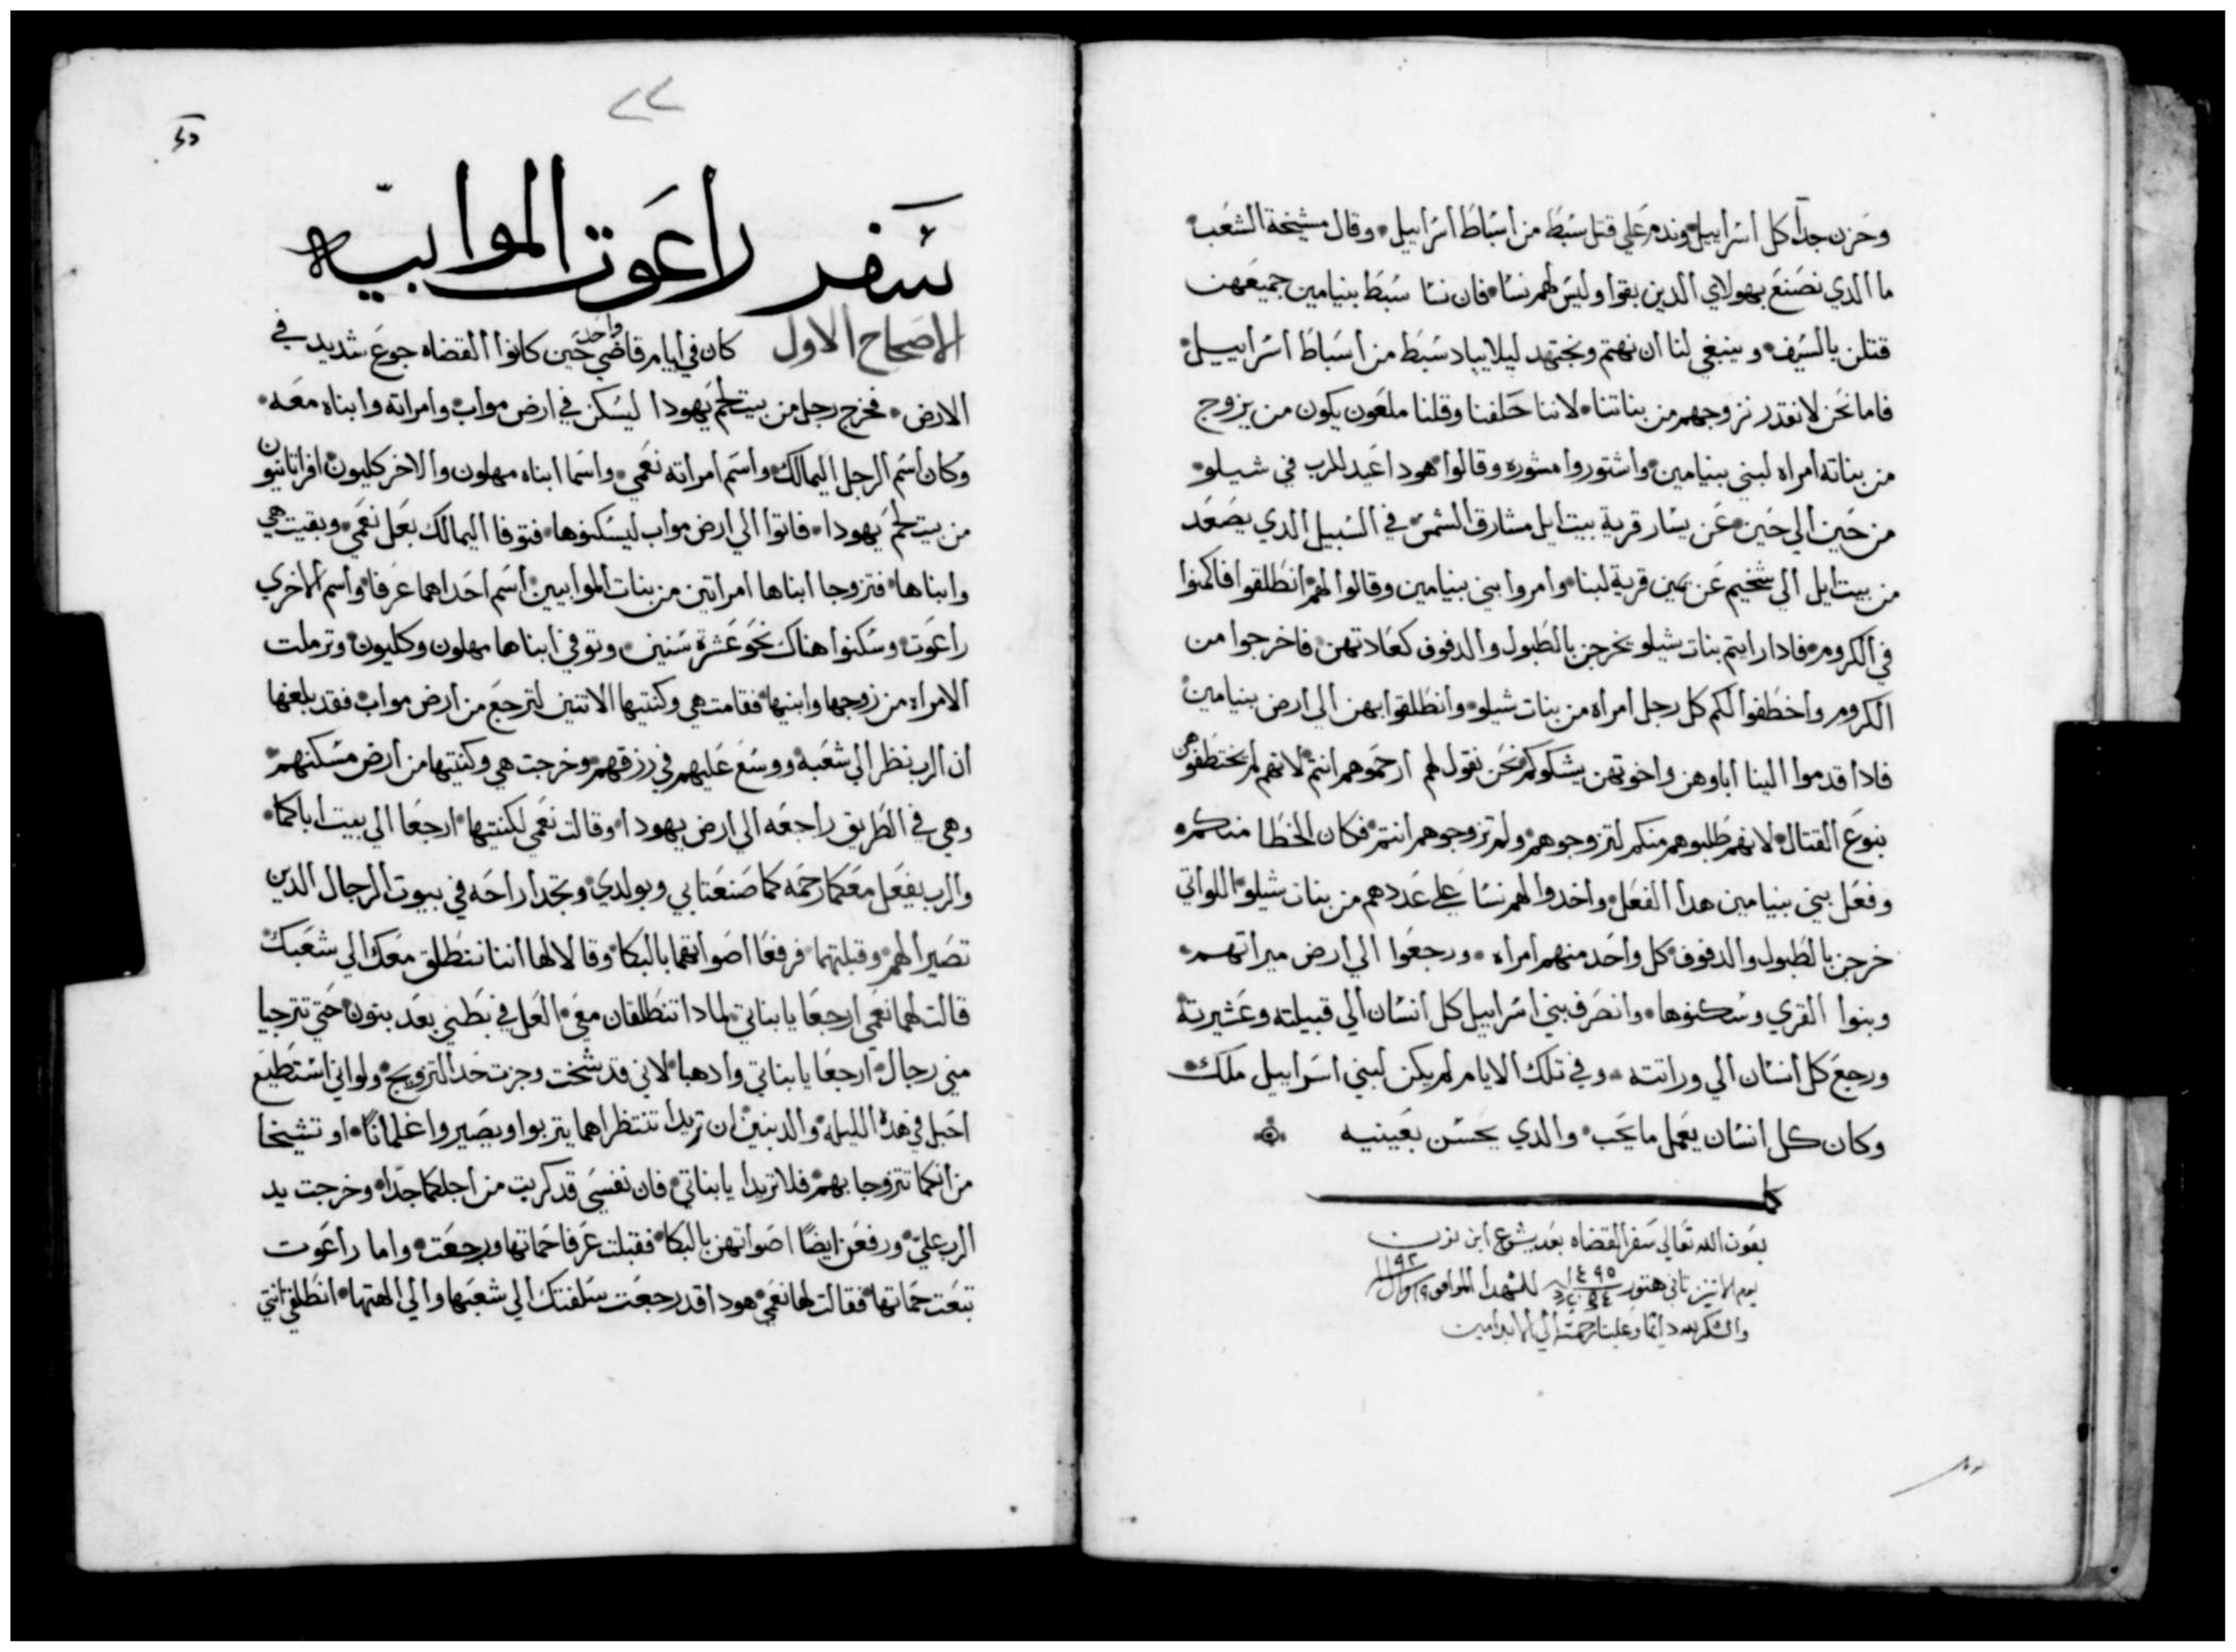 وحزن جدا كل اسراييل وندم علي قتل سبط من اسباط اسراييل وقال مشيخة الشعب
ما الدي نصنع بهولاي الدين بقوا وليس لهم نسا فان نسا سبط بنيامين جميعهن
قتلن بالسيف وينبغي لنا ان نهتم ونجتهد ليلا يباد سبط من اسباط اسراييل
فاما نحن لا نقدر نزوجهم من بناتنا لاننا حلفنا وقلنا ملعون يكون من يزوج
من بناته امراه لبني بنيامين واشتوروا مشوره وقالوا هودا عيد للرب في شيلو
من حين الي حين عن يسار قرية بيت ايل مشارق الشمس في السبيل الدي يصعد
من بيت ايل الي شخيم عن يمين قرية لبنا وامروا بني بنيامين وقالوا لهم انطلقوا فاكمنوا
في الكروم فادا رايتم بنات شيلو يخرجن بالطبول والدفوف كعادتهن فاخرجوا من
الكروم واخطفوا لكم كل رجل امراه من بنات شيلو وانطلقوا بهن الي ارض بنيامين
فادا قدموا الينا اباوهن واخوتهن يشكوكم نحن نقول لهم ارحموهم انتم لانهم لم يختطفوهن
بنوع القتال لانهم طلبوهم منكم لتزوجوهم ولم تزوجوهم انتم فكان الخطا منكم
وفعل بني بنيامين هدا الفعل واخدوا لهم نسا علي عددهم من بنات شيلو اللواتي
خرجن بالطبول والدفوف كل واحد منهم امراه ورجعوا الي ارض ميراتهم
وبنوا القري وسكنوها وانصرف بني اسراييل كل انسان الي قبيلته وعشيرته
ورجع كل انسان الي وراتته وفي تلك الايام لم يكن لبني اسراييل ملك
وكان كل انسان يعمل ما يحب والدي يحسن بعينيه
بعون الله تعالي سفر القضاه بعد يشوع ابن نون
يوم الاتنين تاني هتور ١٤٩٥ للشهدا الموافق شوال ١١٩٢
والشكر لله دايما وعلينا رحمته الي الابد امين
٢٢
سفر راعوت الموابيه
الاصحاح الاول كان في ايام قاضي واحد حين كانوا القضاه جوع شديد في
الارض فخرج رجل من بيت لحم يهودا ليسكن في ارض مواب وامراته وابناه معه
وكان اسم الرجل اليمالك واسم امراته نعمي واسما ابناه مهلون والاخر كليون افراتانيون
من بيت لحم يهودا فاتوا الي ارض مواب ليسكنوها فتوفا اليمالك بعل نعمي وبقيت هي
وابناها فتزوجا ابناها امراتين من بنات الموابيين اسم احداهما عرفا واسم الاخري
راعوت وسكنوا هناك نحو عشرة سنين وتوفي ابناها مهلون وكليون وترملت
الامراه من زوجها وابنيها فقامت هي وكنتيها الاتنين لترجع من ارض مواب فقد بلغها
ان الرب نظر الي شعبه ووسع عليهم في رزقهم وخرجت هي وكنتيها من ارض مسكنهم
وهي في الطريق راجعه الي ارض يهودا وقالت نعمي لكنتيها ارجعا الي بيت اباكما
والرب يفعل معكما رحمه كما صنعتا بي وبولدي وتجدا راحه في بيوت الرجال الدين
تصيرا لهم وقبلتهما فرفعا اصواتهما بالبكا وقالا لها اننا ننطلق معك الي شعبك
قالت لهما نعمي ارجعا يا بناتي لمادا تنطلقان معي العل في بطني بعد بنون حتي تترجيا
مني رجال ارجعا يا بناتي وادهبا لاني قد شخت وجزت حد التزويج ولو اني استطيع
احبل في هده الليله والد بنين ان تريدا تنتظراهما يتربوا ويصيروا غلمانا او تشيخا
من انكما تتزوجا بهم فلا تريدا يا بناتي فان نفسي قد كربت من اجلكما جدا وخرجت يد
الرب علي ورفعن ايضا اصواتهن بالبكا فقبلت عرفا حماتها ورجعت واما راعوت
تبعت حماتها فقالت لها نعمي هودا قد رجعت سلفتك الي شعبها والي الهتها انطلقي انتي